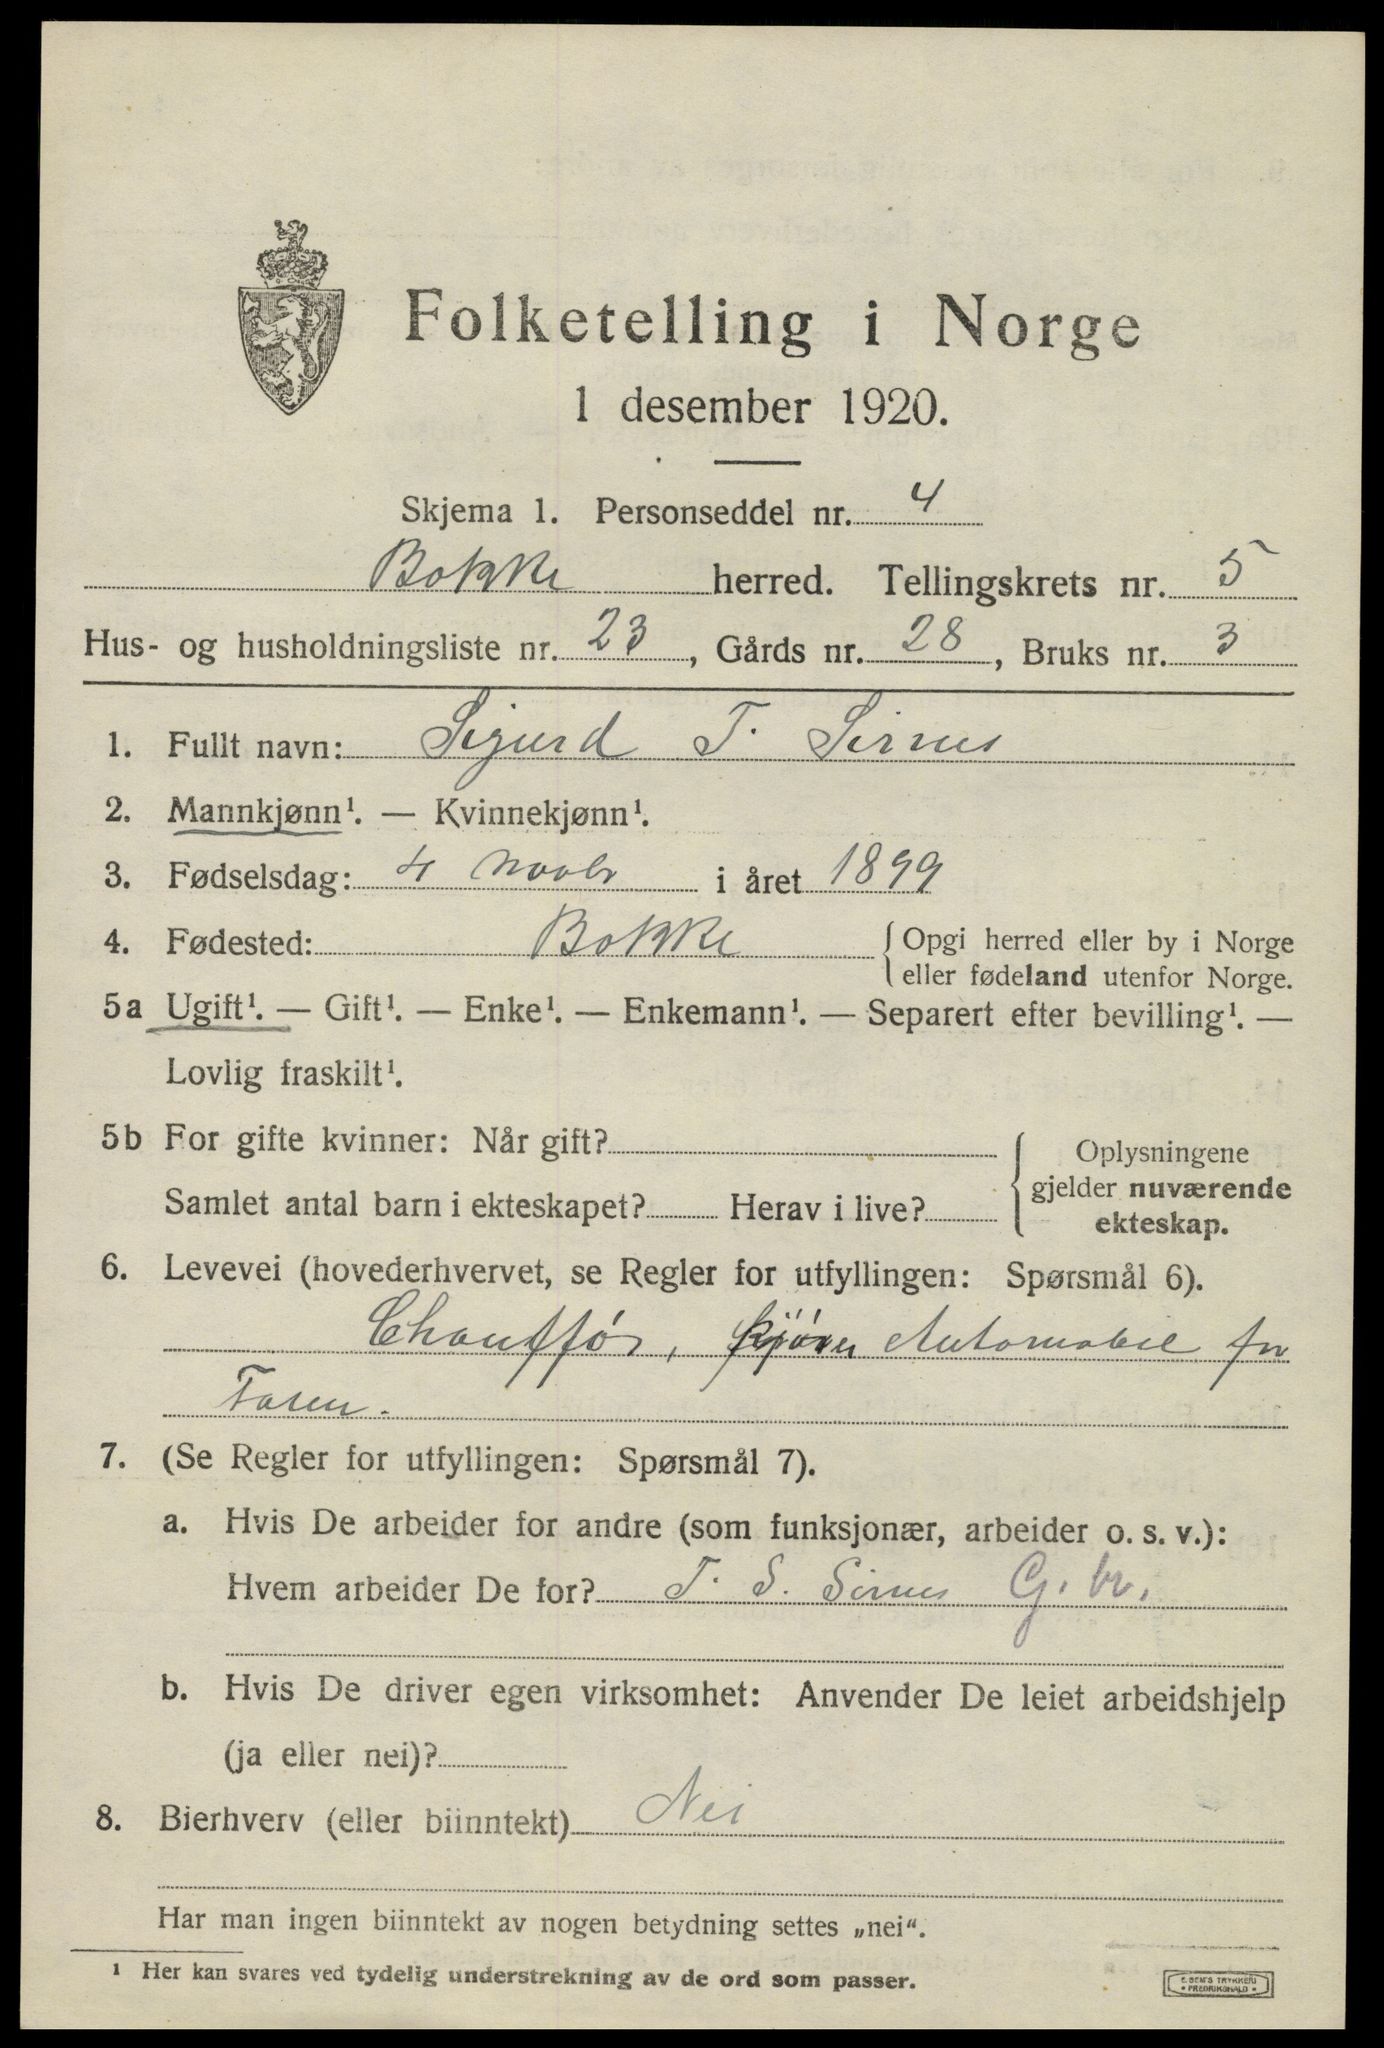 Folketelling i Norge
1 desember 1920.
Skjema 1. Personseddel nr. 4
Bakke herred. Tellingskrets nr. 5
Hus- og husholdningsliste nr. 23, Gårds nr. 28, Bruks nr. 3
1. Fullt navn: Sigurd T. Sirnes
2. Mannkjønn¹. — Kvinnekjønn¹.
3. Fødselsdag: 4 novbr i året 1899
4. Fødested: Bakke { Opgi herred eller by i Norge
eller fødeland utenfor Norge.
5a Ugift¹. — Gift¹. — Enke¹. — Enkemann¹. — Separert efter bevilling¹. —
Lovlig fraskilt¹.
5b For gifte kvinner: Når gift?
Samlet antal barn i ekteskapet? Herav i live?
{ Oplysningene
gjelder nuværende
ekteskap.
6. Levevei (hovederhvervet, se Regler for utfyllingen: Spørsmål 6).
Chauffør, kjører Automobil for
Faren.
7. (Se Regler for utfyllingen: Spørsmål 7).
a. Hvis De arbeider for andre (som funksjonær, arbeider o. s. v.):
Hvem arbeider De for? T. S. Sirnes G. br.
b. Hvis De driver egen virksomhet: Anvender De leiet arbeidshjelp
(ja eller nei)?
8. Bierhverv (eller biinntekt) Nei
Har man ingen biinntekt av nogen betydning settes „nei“.
¹ Her kan svares ved tydelig understrekning av de ord som passer.
E. SEM'S TRYKKERI
• FREDRIKSHALD •